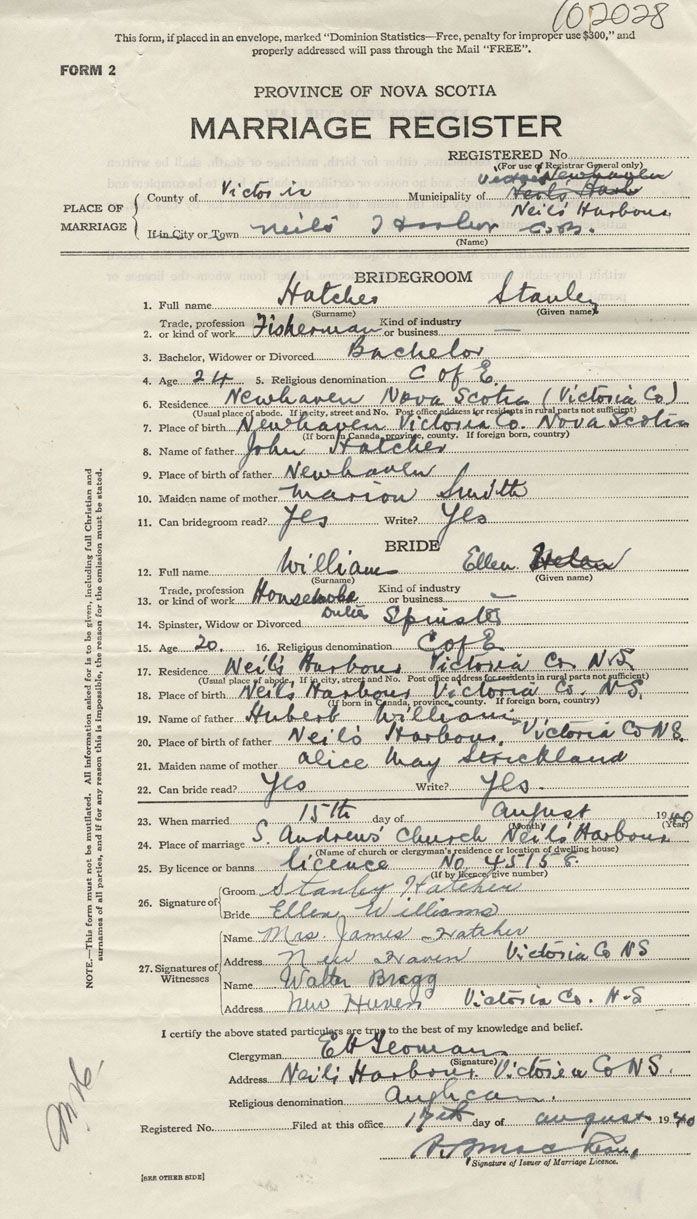 102028
This form, if placed in an envelope, marked "Dominion Statistics—Free, penalty for improper use $300," and
properly addressed will pass through the Mail "FREE".
FORM 2
PROVINCE OF NOVA SCOTIA
MARRIAGE REGISTER
REGISTERED No.
(For use of Registrar General only)
PLACE OF MARRIAGE
County of Victoria Municipality of Victoria Newhaven
Neils Harbour
If in City or Town Neils Harbor C.B.
(Name)
BRIDEGROOM
1. Full name Hatcher Stanley
(Surname) (Given name)
2. Trade, profession or kind of work Fisherman Kind of industry or business —
3. Bachelor, Widower or Divorced Bachelor
4. Age 24 5. Religious denomination C of E.
6. Residence Newhaven Nova Scotia (Victoria Co)
(Usual place of abode. If in city, street and No. Post office address for residents in rural parts not sufficient)
7. Place of birth Newhaven Victoria Co. Nova Scotia
(If born in Canada, province, county. If foreign born, country)
8. Name of father John Hatcher
9. Place of birth of father Newhaven
10. Maiden name of mother Marion Smith
11. Can bridegroom read? Yes Write? Yes
BRIDE
12. Full name Williams Ellen
(Surname) (Given name)
13. Trade, profession or kind of work Duties Kind of industry or business —
14. Spinster, Widow or Divorced Spinster
15. Age 20. 16. Religious denomination C of E
17. Residence Neil's Harbour Victoria Co N.S.
(Usual place of abode. If in city, street and No. Post office address for residents in rural parts not sufficient)
18. Place of birth Neils Harbour Victoria Co. N.S.
(If born in Canada, province, county. If foreign born, country)
19. Name of father Hubert Williams
20. Place of birth of father Neils Harbour, Victoria Co NS.
21. Maiden name of mother Alice May Strickland
22. Can bride read? Yes Write? Yes.
23. When married 15th day of August 1940
(Month) (Year)
24. Place of marriage S Andrews' Church Neils Harbour
(Name of church or clergyman's residence or location of dwelling house)
25. By licence or banns licence No. 45158.
(If by licence, give number)
26. Signature of
Groom Stanley Hatcher
Bride Ellen Williams
27. Signatures of Witnesses
Name Mrs. James Hatcher
Address New Haven Victoria Co NS
Name Walter Bragg
Address New Haven Victoria Co. N-S
I certify the above stated particulars are true to the best of my knowledge and belief.
Clergyman E H Yeomans
(Signature)
Address Neils Harbour Victoria Co NS.
Religious denomination Anglican.
Registered No. Filed at this office 17th day of August 1940
Signature of Issuer of Marriage Licence.
[SEE OTHER SIDE]
NOTE.—This form must not be mutilated. All information asked for is to be given, including full Christian and
surnames of all parties, and if for any reason this is impossible, the reason for the omission must be stated.